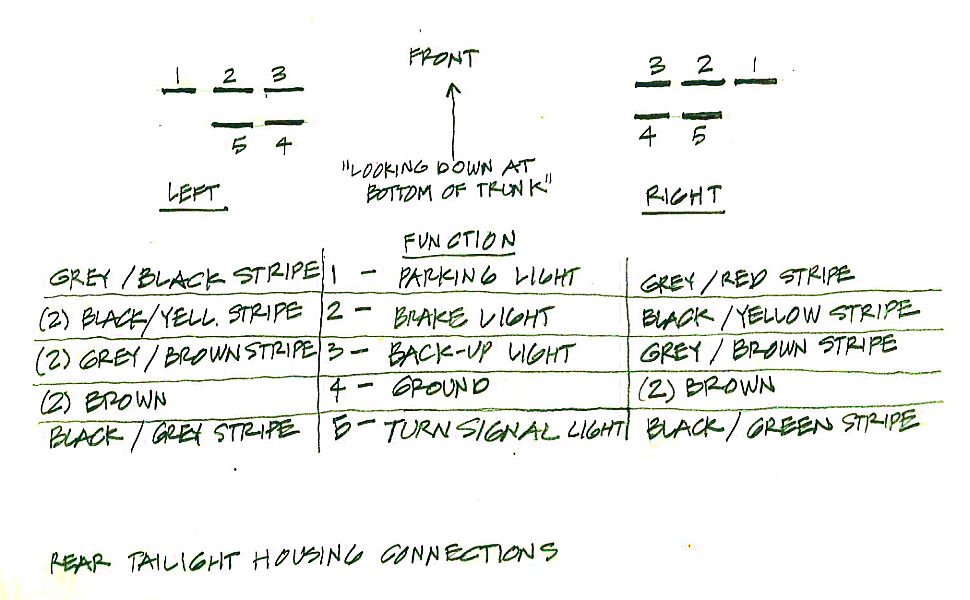 FRONT
1 2 3
5 4
3 2 1
4 5
"LOOKING DOWN AT
BOTTOM OF TRUNK"
LEFT
RIGHT
FUNCTION
GREY/BLACK STRIPE 1 - PARKING LIGHT GREY/RED STRIPE
(2) BLACK/YELL. STRIPE 2 - BRAKE LIGHT BLACK/YELLOW STRIPE
(2) GREY/BROWN STRIPE 3 - BACK-UP LIGHT GREY/BROWN STRIPE
(2) BROWN 4 - GROUND (2) BROWN
BLACK/GREY STRIPE 5 - TURN SIGNAL LIGHT BLACK/GREEN STRIPE
REAR TAILIGHT HOUSING CONNECTIONS